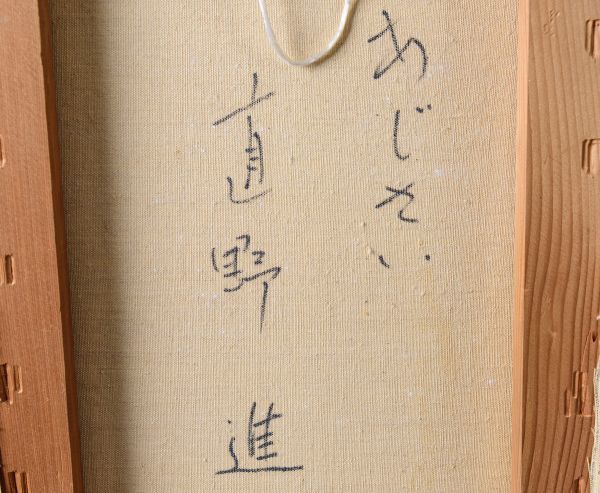 あじさい
直野 進